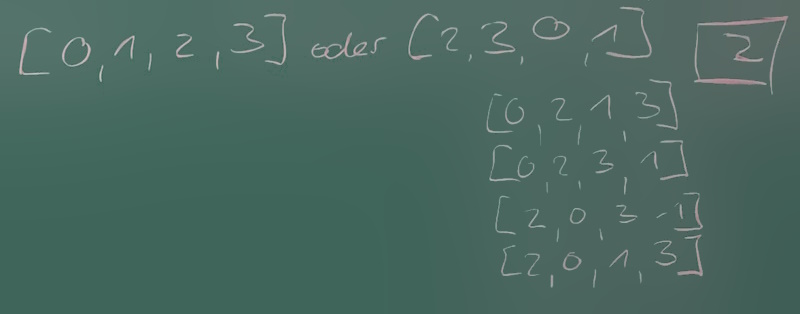 [0, 1, 2, 3] oder [2, 3, 0, 1] 2
[0, 2, 1, 3]
[0, 2, 3, 1]
[2, 0, 3, 1]
[2, 0, 1, 3]